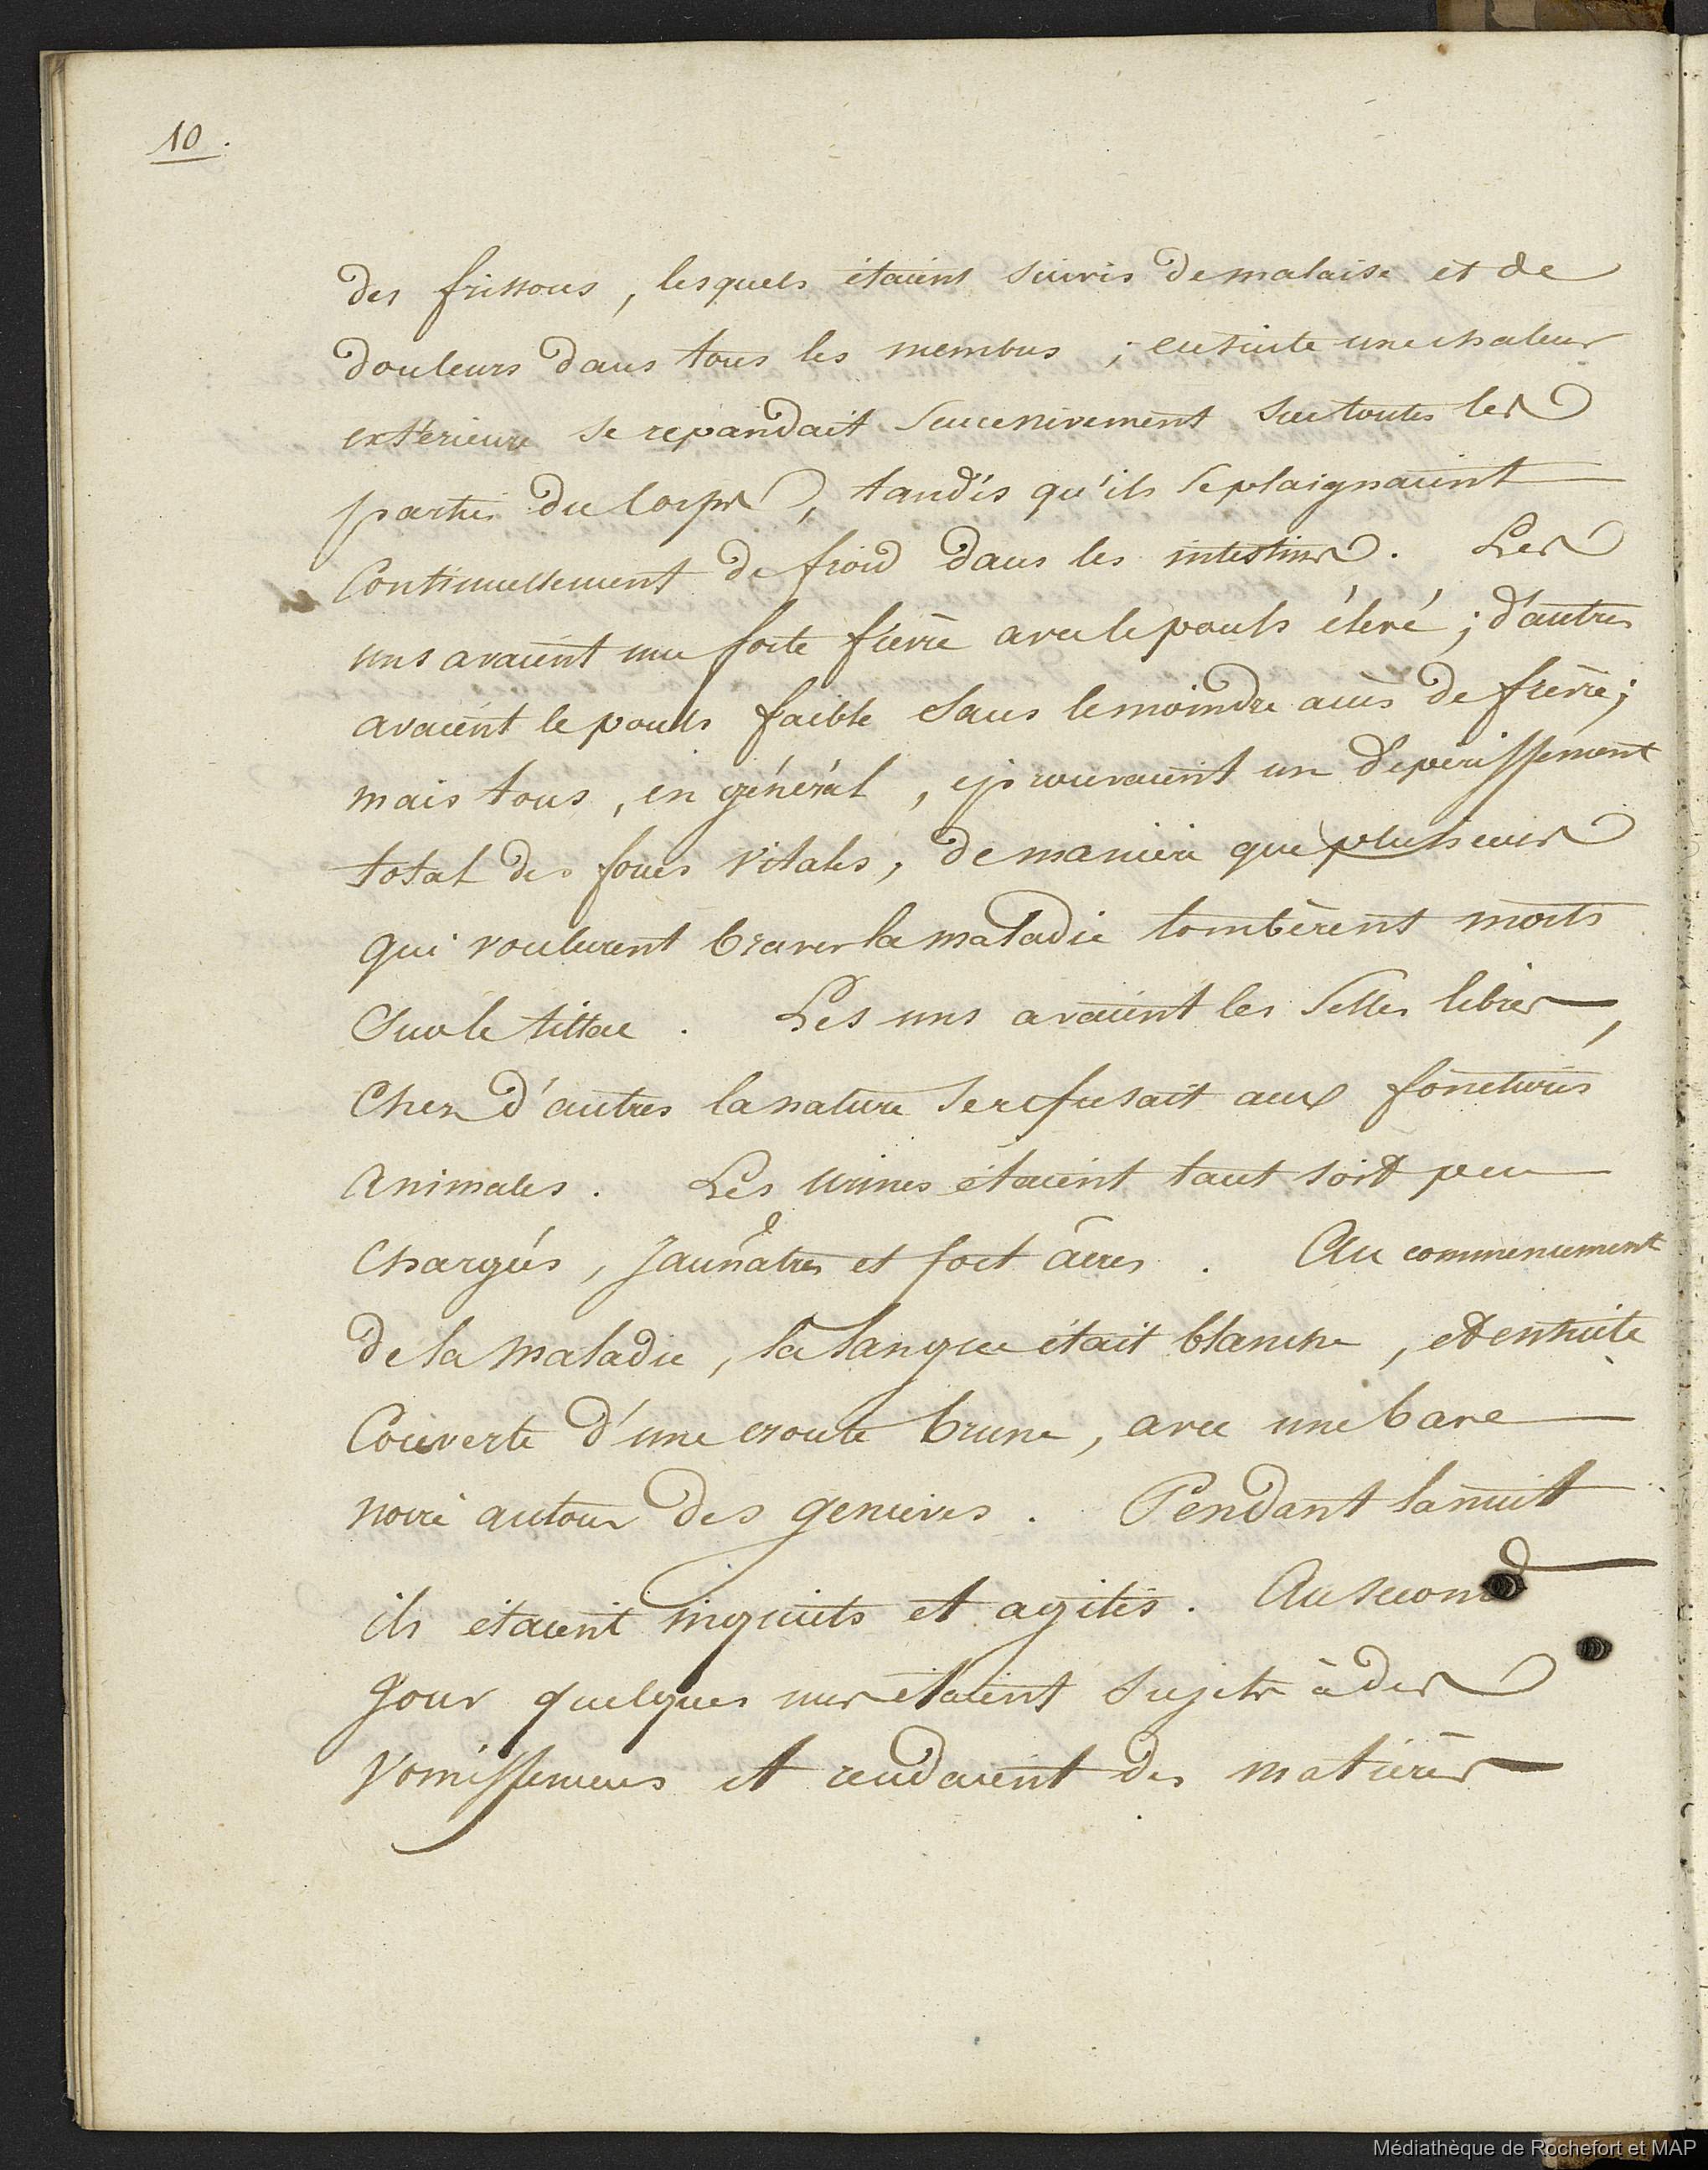 10.
des frissons, lesquels étaient suivis de malaise et de
douleurs dans tous les membres ; ensuite une chaleur
extérieure se repandait successivement sur toutes les
parties du corps, tandis qu'ils se plaignaient
Continuellement de froid dans les intestins. Les
uns avaient une forte fièvre avec le pouls élevé ; d'autres
avaient le pouls faible sans le moindre accès de fièvre ;
mais tous, en général, eprouvaient un dépérissement
total des forces vitales, de manière que plusieurs
qui voulurent braver la maladie tombèrent morts
Sur le tillac. Les uns avaient les selles libres,
Chez d'autres la nature se refusait aux fonctions
animales. Les urines étaient tant soit peu
Chargées, Jaunâtres et fort âcres. Au commencement
de la maladie, la langue était blanche, et ensuite
Couverte d'une croute brune, avec une bave
noire autour des gencives. Pendant la nuit
ils étaient inquiets et agités. Au second
Jour quelques uns étaient sujets à des
Vomissemens et rendaient des matières
Médiathèque de Rochefort et MAP